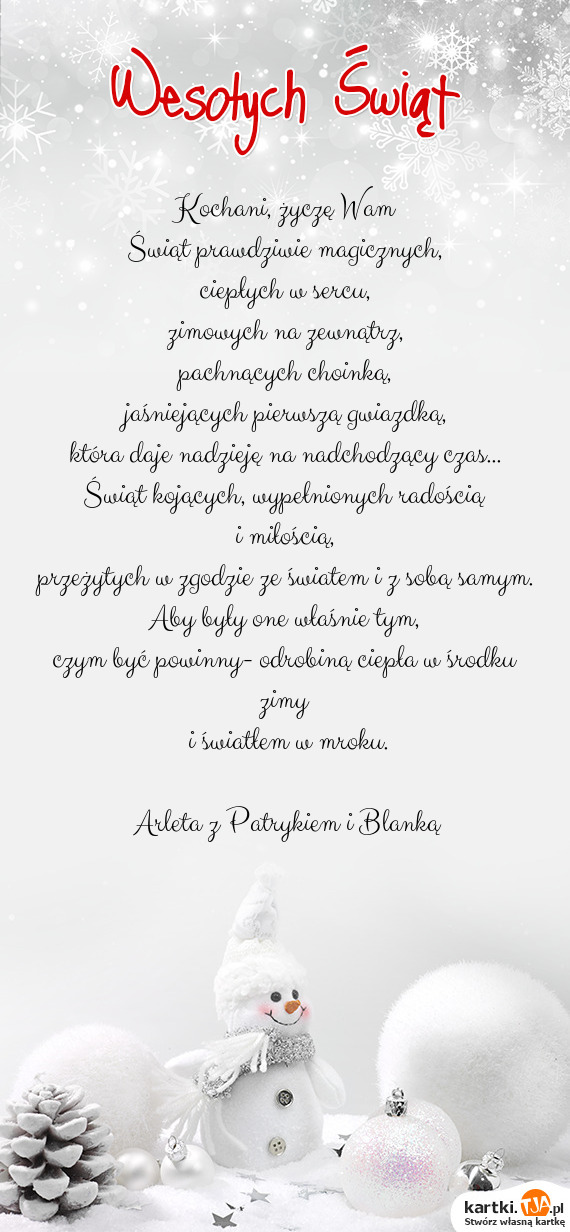 Wesołych Świąt
Kochani, życzę Wam
Świąt prawdziwie magicznych,
ciepłych w sercu,
zimowych na zewnątrz,
pachnących choinką,
jaśniejących pierwszą gwiazdką,
która daje nadzieję na nadchodzący czas...
Świąt kojących, wypełnionych radością
i miłością,
przeżytych w zgodzie ze światem i z sobą samym.
Aby były one właśnie tym,
czym być powinny- odrobiną ciepła w środku
zimy
i światłem w mroku.
Arleta z Patrykiem i Blanką
kartki.TJA.pl
Stwórz własną kartkę